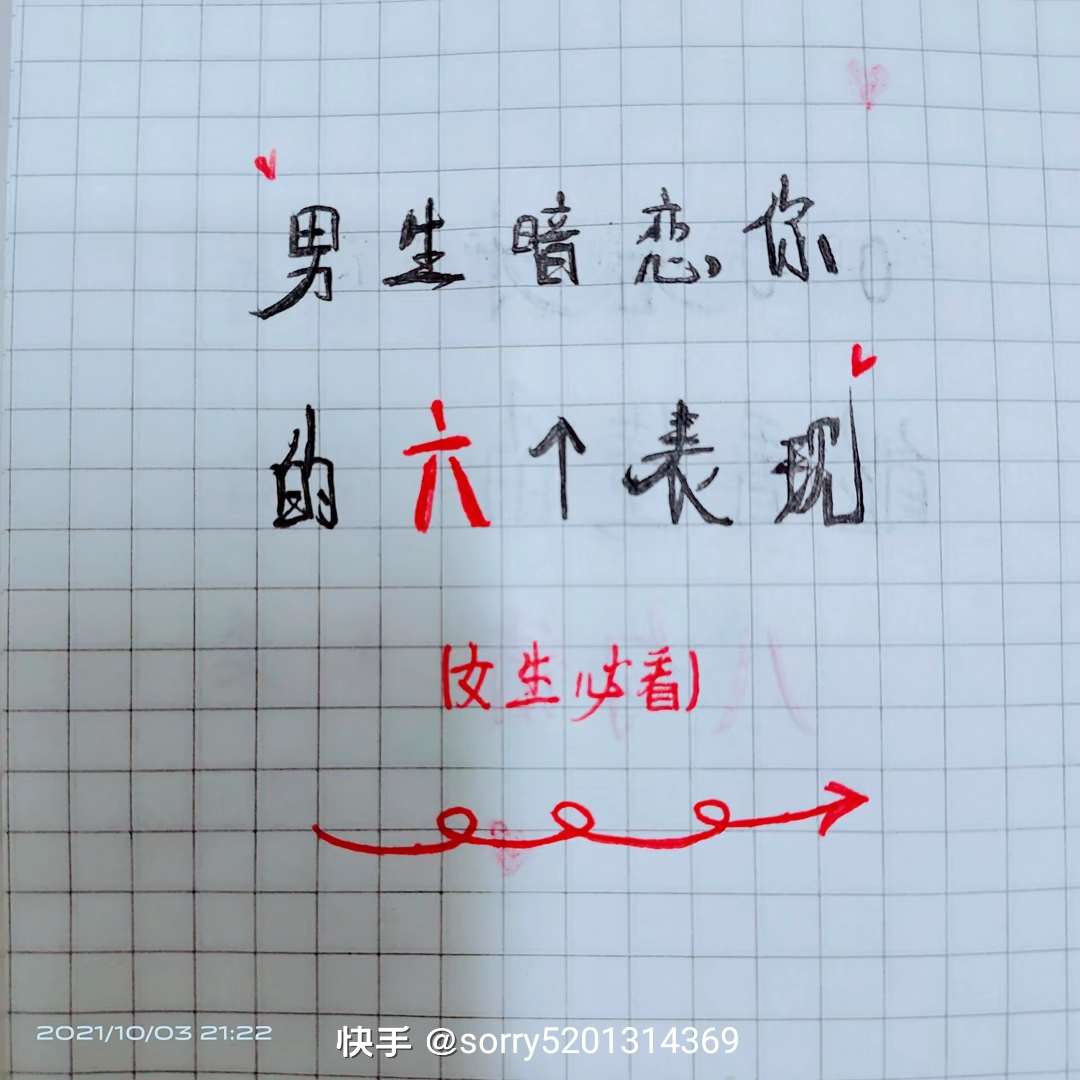 男生暗恋你
的六个表现
(女生必看)
2021/10/03 21:22
快手 @sorry5201314369